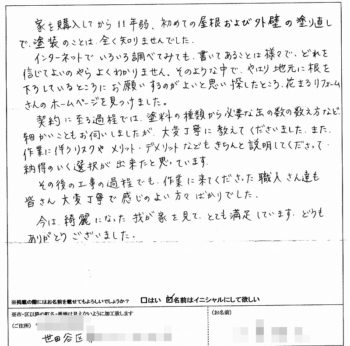 家を購入してから11年弱、初めての屋根および外壁の塗り直し
で、塗装のことは全く知りませんでした。
インターネットでいろいろ調べてみても、書いてあることは様々で、どれを
信じてよいのやらよくわかりません。そのような中で、やはり地元に根を
下ろしているところにお願いするのがよいと思い探したところ、花まるリフォーム
さんのホームページを見つけました。
契約に至る過程では、塗料の種類から必要な缶の数の数え方など
細かいこともお伺いしましたが、大変丁寧に教えてくださいました。また、
作業に伴うリスクやメリット・デメリットなどもきちんと説明してくださって、
納得のいく選択が出来たと思っています。
その後の工事の過程でも、作業に来てくださった職人さん達も
皆さん大変丁寧で感じのよい方々ばかりでした。
今は、綺麗になった我が家を見て、とても満足しています。どうも
ありがとうございました。
※掲載の際にはお名前を載せてもよろしいでしょうか? □はい ☑名前はイニシャルにして欲しい
※市・区以降の町名・番地は見えないように加工致します
(ご住所) (お名前)
世田谷区